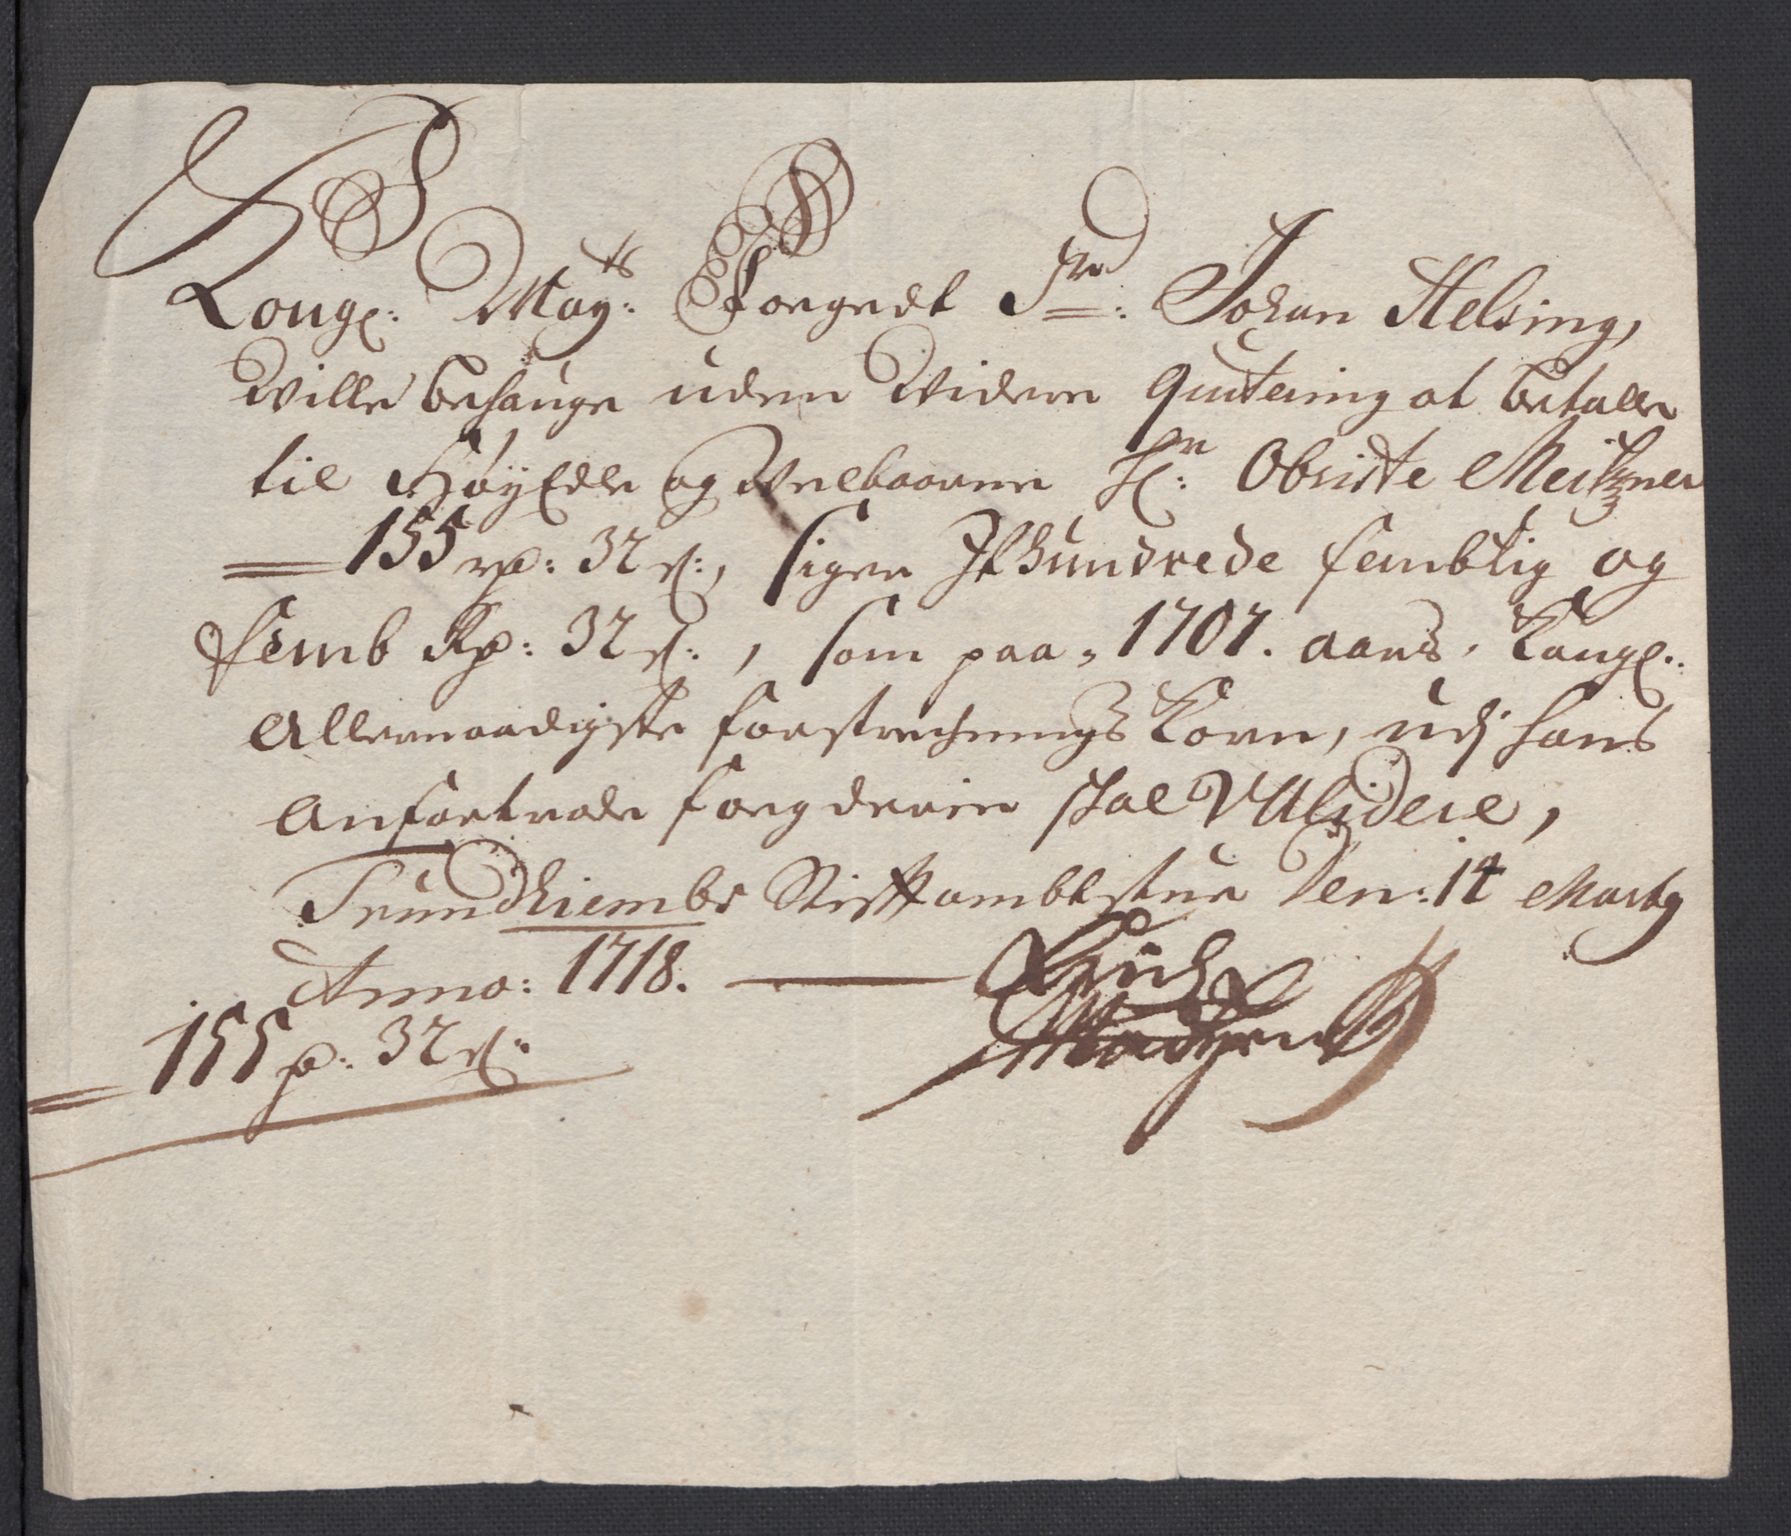 Kongl: May:ts Foegedt Sr: Johan Helsing,
wille behage uden widere quitering at betalle
til HøyEdle og Welbaarne Hr: Obriste Meitzner
155 rd: 32 s:, siger Jt hundrede fembtig og
femb Rd: 32 s:, som paa 1707. aars, Kongl:
Allernaadigste forstrechnings Korn, udj hans
Anfortrode foegderie skal validere,
Trundhiembs Stiftambtstue den: 14 Marty
Anno: 1718.
155 rd: 32 s: